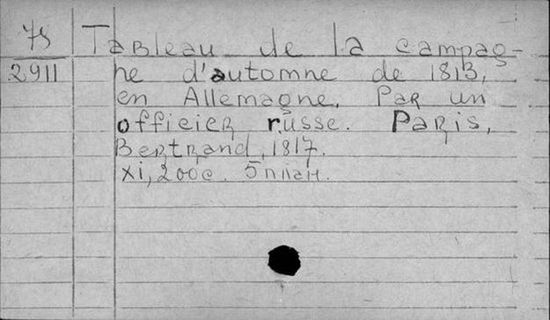 75 Tableau de la campag-
2911 ne d'automne de 1813,
en Allemagne. Par un
officier russe. Paris,
Bertrand, 1817.
XI, 200 с. 5 план.